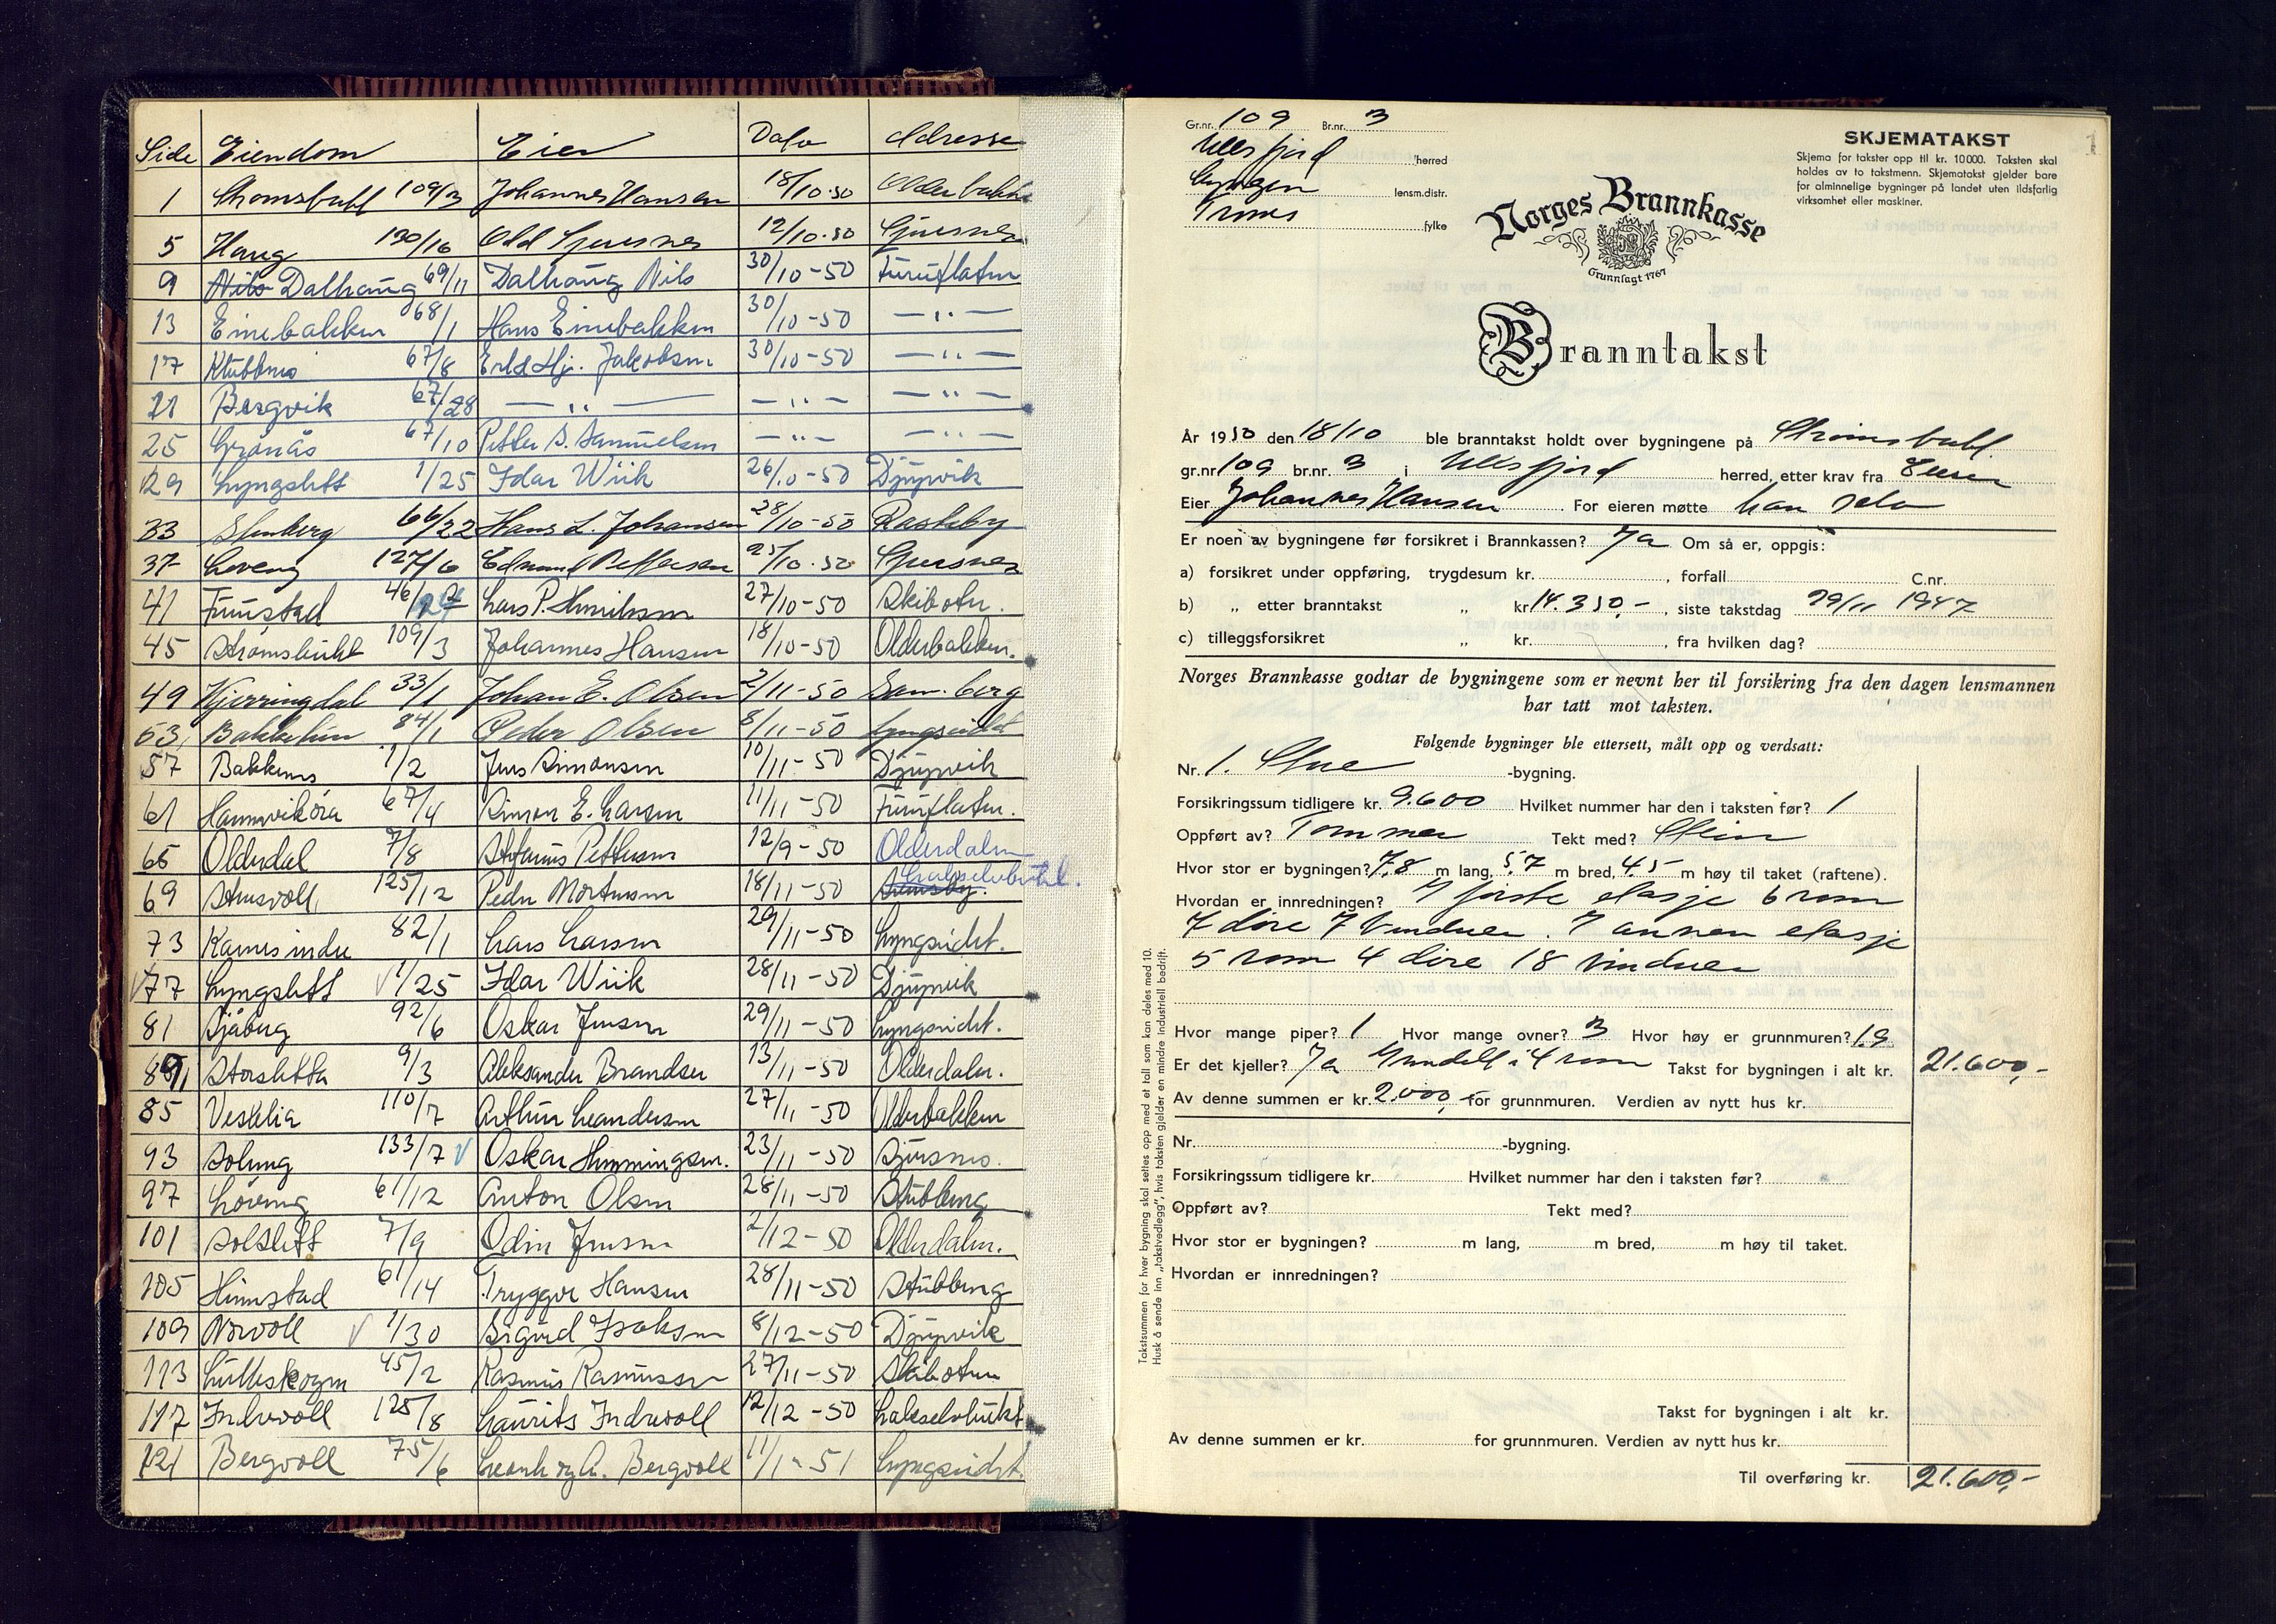 Side Eiendom Eier Dato Adresse
1 Strømsbukt 109/3 Johannes Hansen 18/10-50 Olderbakken
5 Haug 130/16 Odd Sjursnes 12/10-50 Sjursnes
9 Nils Dalhaug 69/11 Dalhaug Nils 30/10-50 Furuflaten
13 Einebakken 68/1 Hans Einebakken 30/10-50 — " —
17 Klubbnes 67/8 Erld Hj. Jakobsen 30/10-50 — " —
21 Bergvik 67/28 — " — — " — — " —
25 Grönås 67/10 Petter S. Samuelsen — " — — " —
29 Lyngslett 1/25 Idar Wiik 26/10-50 Djupvik
33 Stenberg 66/22 Hans L. Johansen 28/10-50 Rasteby
37 Løveng 127/6 Edmund Pettersen 25/10-50 Sjursnes
41 Furustad 46/27 Lars P. Henriksen 27/10-50 Skibotn.
45 Strømsbukt 109/3 Johannes Hansen 18/10-50 Olderbakken.
49 Kjerringdal 33/1 Johan E. Olsen 2/11-50 Sam. berg
53, Bakketun 84/1 Peder Olsen 8/11-50 Lyngseidet
57 Bakkenes 1/2 Jens Simonsen 10/11-50 Djupvik
61 Hamnvikøra 67/4 Simon E. Larsen 11/11-50 Furuflaten.
65 Olderdal 7/8 Stefanus Pettersen 12/9-50 Olderdalen
69 Stensvoll 125/12 Peder Mortensen 18/11-50 Lakselvbukt.
73 Karnes indre 82/1 Lars Larsen 29/11-50 Lyngseidet.
77 Lyngslett 1/25 Idar Wiik 28/11-50 Djupvik
81 Sjåberg 92/6 Oskar Jensen 29/11-50 Lyngseidet.
89 Storsletta 9/3 Aleksander Brandser 13/11-50 Olderdalen.
85 Veslelia 110/7 Arthur Leandersen 27/11-50 Olderbakken
93 Soleng 133/7 Oskar Hemmingsen. 23/11-50 Sjursnes.
97 Löveng 61/12 Anton Olsen 28/11-50 Stubbeng
101 Solslett 7/9 Odin Jensen 2/12-50 Olderdalen.
105 Heimstad 61/14 Tryggve Hansen 28/11-50 Stubbeng
109 Norvoll 1/30 Sigurd Isaksen 8/12-50 Djupvik
113 Lulleskogen 45/2 Rasmus Rasmussen 27/11-50 Skibotn
117 Indrevoll 125/8 Laurits Indrevoll 12/12-50 Lakselvbukt
121 Bergvoll 75/6 Leonh og A. Bergvoll 11/1-51 Lyngseidet.
1
Gr.nr. 109 Br.nr. 3
Ullsfjord herred
Lyngen lensm.distr.
Troms fylke
SKJEMATAKST
Skjema for takster opp til kr. 10000. Taksten skal
holdes av to takstmenn. Skjematakst gjelder bare
for alminnelige bygninger på landet uten ildsfarlig
virksomhet eller maskiner.
Norges Brannkasse
Grunnlagt 1767
Branntakst
År 1950 den 18/10 ble branntakst holdt over bygningene på Strømsbukt
gr.nr 109 br.nr. 3 i Ullsfjord herred, etter krav fra Eieren
Eier Johannes Hansen For eieren møtte han selv
Er noen av bygningene før forsikret i Brannkassen? Ja Om så er, oppgis:
a) forsikret under oppføring, trygdesum kr. , forfall C.nr.
b) „ etter branntakst „ kr 14.350,- , siste takstdag 29/11 1947
c) tilleggsforsikret „ kr. , fra hvilken dag?
Norges Brannkasse godtar de bygningene som er nevnt her til forsikring fra den dagen lensmannen
har tatt mot taksten.
Følgende bygninger ble ettersett, målt opp og verdsatt:
Nr. 1. Stue -bygning.
Forsikringssum tidligere kr. 9.600 Hvilket nummer har den i taksten før? 1
Oppført av? Tømmer Tekt med? Stein
Hvor stor er bygningen? 7,8 m lang, 5.7 m bred, 4.5 m høy til taket (raftene).
Hvordan er innredningen? I første etasje 6 rom
7 døre 7 Vinduer. I annen etasje
5 rom 4 døre 18 vinduer
Hvor mange piper? 1 Hvor mange ovner? 3 Hvor høy er grunnmuren? 1.9
Er det kjeller? Ja Inndelt i 4 rom Takst for bygningen i alt kr. 21.600,-
Av denne summen er kr. 2.000,- for grunnmuren. Verdien av nytt hus kr.
Nr. -bygning.
Forsikringssum tidligere kr. Hvilket nummer har den i taksten før?
Oppført av? Tekt med?
Hvor stor er bygningen? m lang, m bred, m høy til taket.
Hvordan er innredningen?
Takst for bygningen i alt kr.
Av denne summen er kr. for grunnmuren. Verdien av nytt hus kr.
Til overføring kr. 21.600,-
Takstsummen for hver bygning skal settes opp med et tall som kan deles med 10.
Husk å sende inn „takstvedlegg", hvis taksten gjelder en mindre industriell bedrift.